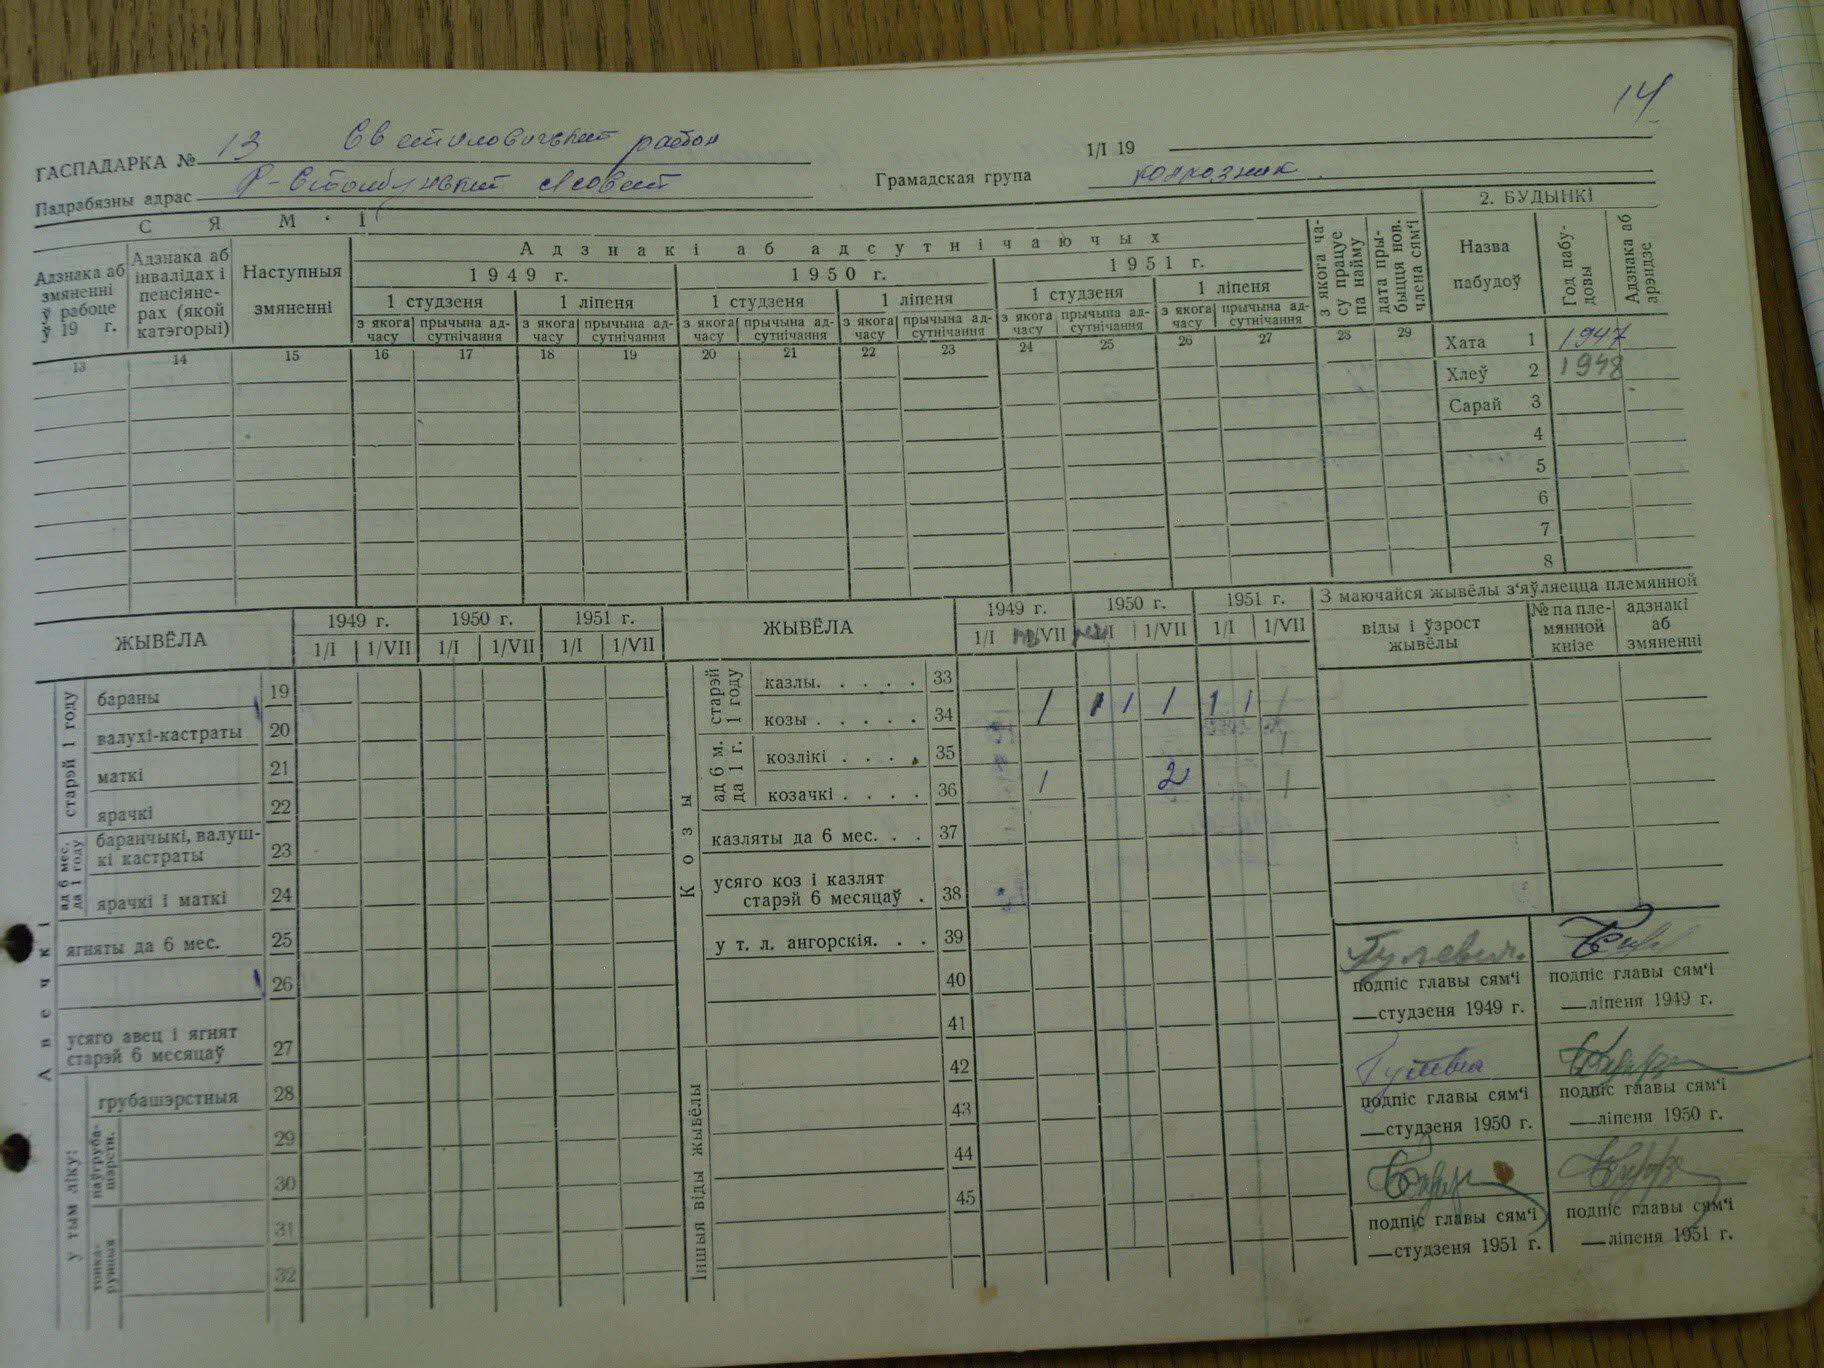 14
ГАСПАДАРКА № 13 Светиловичский район 1/I 19
Падрабязны адрас Р-Столбунский с/совет Грамадская група колхозник.
С Я М ' І
2. БУДЫНКІ
Адзнака аб змяненні ў рабоце ў 19 г.
Адзнака аб інвалідах і пенсіяне-рах (якой катэгорыі)
Наступныя змяненні
Адзнакі аб адсутнічаючых
1949 г. 1950 г. 1951 г.
1 студзеня 1 ліпеня 1 студзеня 1 ліпеня 1 студзеня 1 ліпеня
з якога часу прычына ад-сутнічання з якога часу прычына ад-сутнічання з якога часу прычына ад-сутнічання з якога часу прычына ад-сутнічання з якога часу прычына ад-сутнічання з якога часу прычына ад-сутнічання
з якога ча-су працуе па найму
дата пры-быцця нов. члена сям'і
Назва пабудоў
Год пабу-довы
Адзнака аб арэндзе
13 14 15 16 17 18 19 20 21 22 23 24 25 26 27 28 29
Хата 1 1947
Хлеў 2 1948
Сарай 3
4
5
6
7
8
ЖЫВЁЛА
1949 г. 1950 г. 1951 г.
1/I 1/VII 1/I 1/VII 1/I 1/VII
Авечкі
старэй 1 году
бараны 19
валухі-кастраты 20
маткі 21
ярачкі 22
ад 6 мес. да 1 году
баранчыкі, валуш-
кі кастраты 23
ярачкі і маткі 24
ягняты да 6 мес. 25
26
усяго авец і ягнят
старэй 6 месяцаў 27
у тым ліку:
грубашэрстныя 28
паўгруба-шэрсти.
29
30
тонка-рунныя
31
32
ЖЫВЁЛА
1949 г. 1950 г. 1951 г.
1/I 1/VII 1/I 1/VII 1/I 1/VII
Козы
старэй 1 году
казлы. . . . . 33
козы . . . . . 34 1 1 1 1 1 1 1
ад 6 м. да 1 г.
козлікі . . . . 35
козачкі . . . . 36 1 2 1
казляты да 6 мес. . . 37
усяго коз і казлят
старэй 6 месяцаў . 38
у т. л. ангорскія. . . 39
40
41
Іншыя віды жывёлы
42
43
44
45
З маючайся жывёлы з'яўляецца племянной
віды і ўзрост жывёлы
№ па пле-мянной кнізе
адзнакі аб змяненні
Гулевич.
подпіс главы сям'і
—студзеня 1949 г.
подпіс главы сям'і
—ліпеня 1949 г.
подпіс главы сям'і
—студзеня 1950 г.
подпіс главы сям'і
—ліпеня 1950 г.
подпіс главы сям'і
—студзеня 1951 г.
подпіс главы сям'і
—ліпеня 1951 г.